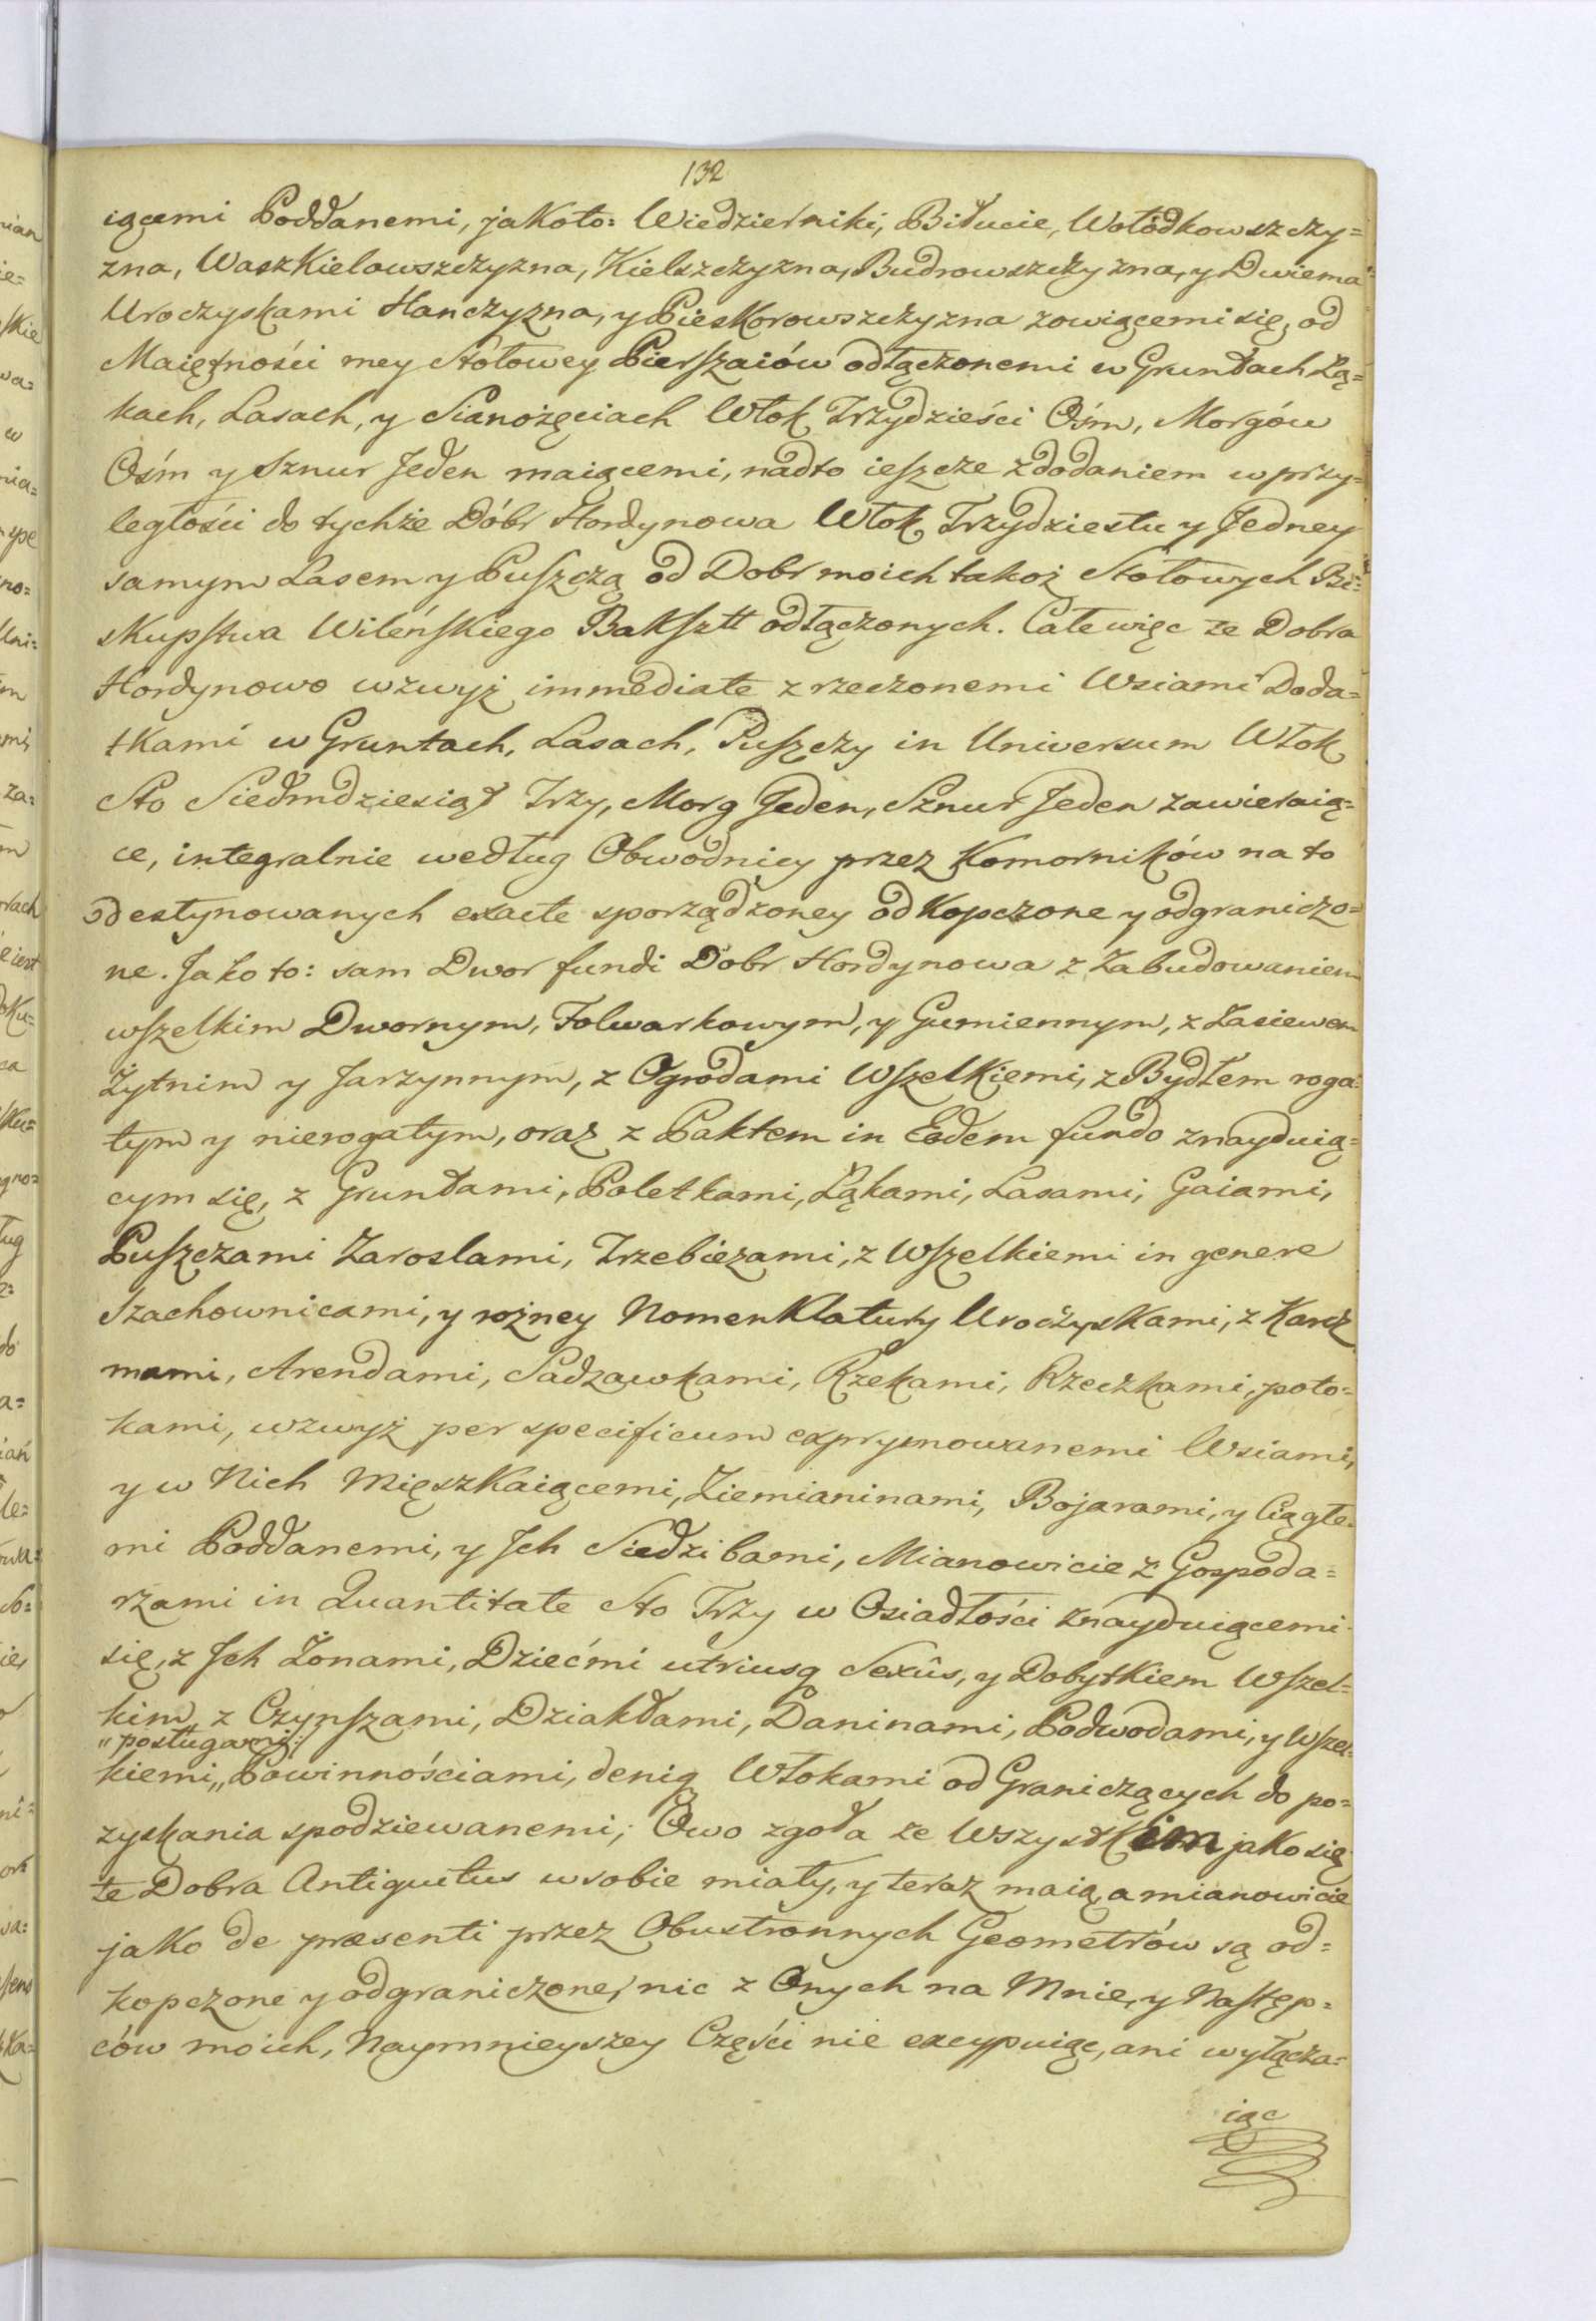 132
iącemi Poddanemi, jako to: Wiedzierniki, Biłucie, Wołodkowszczy=
zna, Waszkielowszczyzna, Kielszczyzna, Budrowszczyzna, y Dwiema
Uroczyskami Hanczyzna, y Pieskorowszczyzna zowiącemi się, od
Maiętności mey Stołowey Pierszaiów odłączonemi w Gruntach Łą=
kach, Lasach, y Sianożęciach Włok Trzydzieści Ośm, Morgów
Ośm y Sznur Jeden maiącemi, nadto ieszcze z dodaniem w przy=
ległości do tychże Dóbr Hordynowa Włok Trzydziestu y Jedney
samym Lasem y Puszczą od Dobr moich takoż Stołowych Bi=
skupstwa Wileńskiego Baksztt odłączonych. Całe więc te Dobra
Hordynowo wzwyż immediate z rzeczonemi Wsiami Doda=
tkami w Gruntach, Lasach, Puszczy in Universum Włok
Sto Siedmdziesiąt Trzy, Morg Jeden, Sznur Jeden zawieraią=
ce, integralnie według Obwodnicy przez Komorników na to
destynowanych exacte sporządzoney odkopczone y odgraniczo=
ne. Jako to: sam Dwor fundi Dobr Hordynowa z Zabudowaniem
wszelkim Dwornym, Folwarkowym, y Gumiennym, z Zasiewem
Żytnim y Jarzynnym, z Ogrodami Wszelkiemi, z Bydłem roga=
tym y nierogatym, oraz z Paktem in Eodem fundo znayduią=
cym się, z Gruntami, Poletkami, Łąkami, Lasami, Gaiami,
Puszczami Zaroslami, Trzebieżami, z Wszelkiemi in genere
Szachownicami, y rożney Nomenklatury Uroczyskami, z Karcz
mami, Arendami, Sadzawkami, Rzekami, Rzeczkami, poto=
kami, wzwyż per specificum exprymowanemi Wsiami,
y w Nich Mięszkaiącemi, Ziemianinami, Bojarami, y Ciągłe=
mi Poddanemi, y Jch Siedzibami, Mianowicie z Gospoda=
rzami in Quantitate Sto Trzy w Osiadłości znayduiącemi
się, z Jch Żonami, Dziećmi utriusq Sexûs, y Dobytkiem Wszel=
kim z Czynszami, Dziakłami, Daninami, Podwodami, y Wszel=
„posługami;
kiemi „ Powinnościami, deniq Włokami od Graniczących do po=
zyskania spodziewanemi; Owo zgoła ze Wszystkim jako się
te Dobra Antiquitus w sobie miały, y teraz maią, a mianowicie
jako de præsenti przez Obustronnych Geometrów są od=
kopczone y odgraniczone, nic z Onych na Mnie, y Następ=
ców moich, Naymnieyszey Części nie excypuiąc, ani wyłącza=
iąc